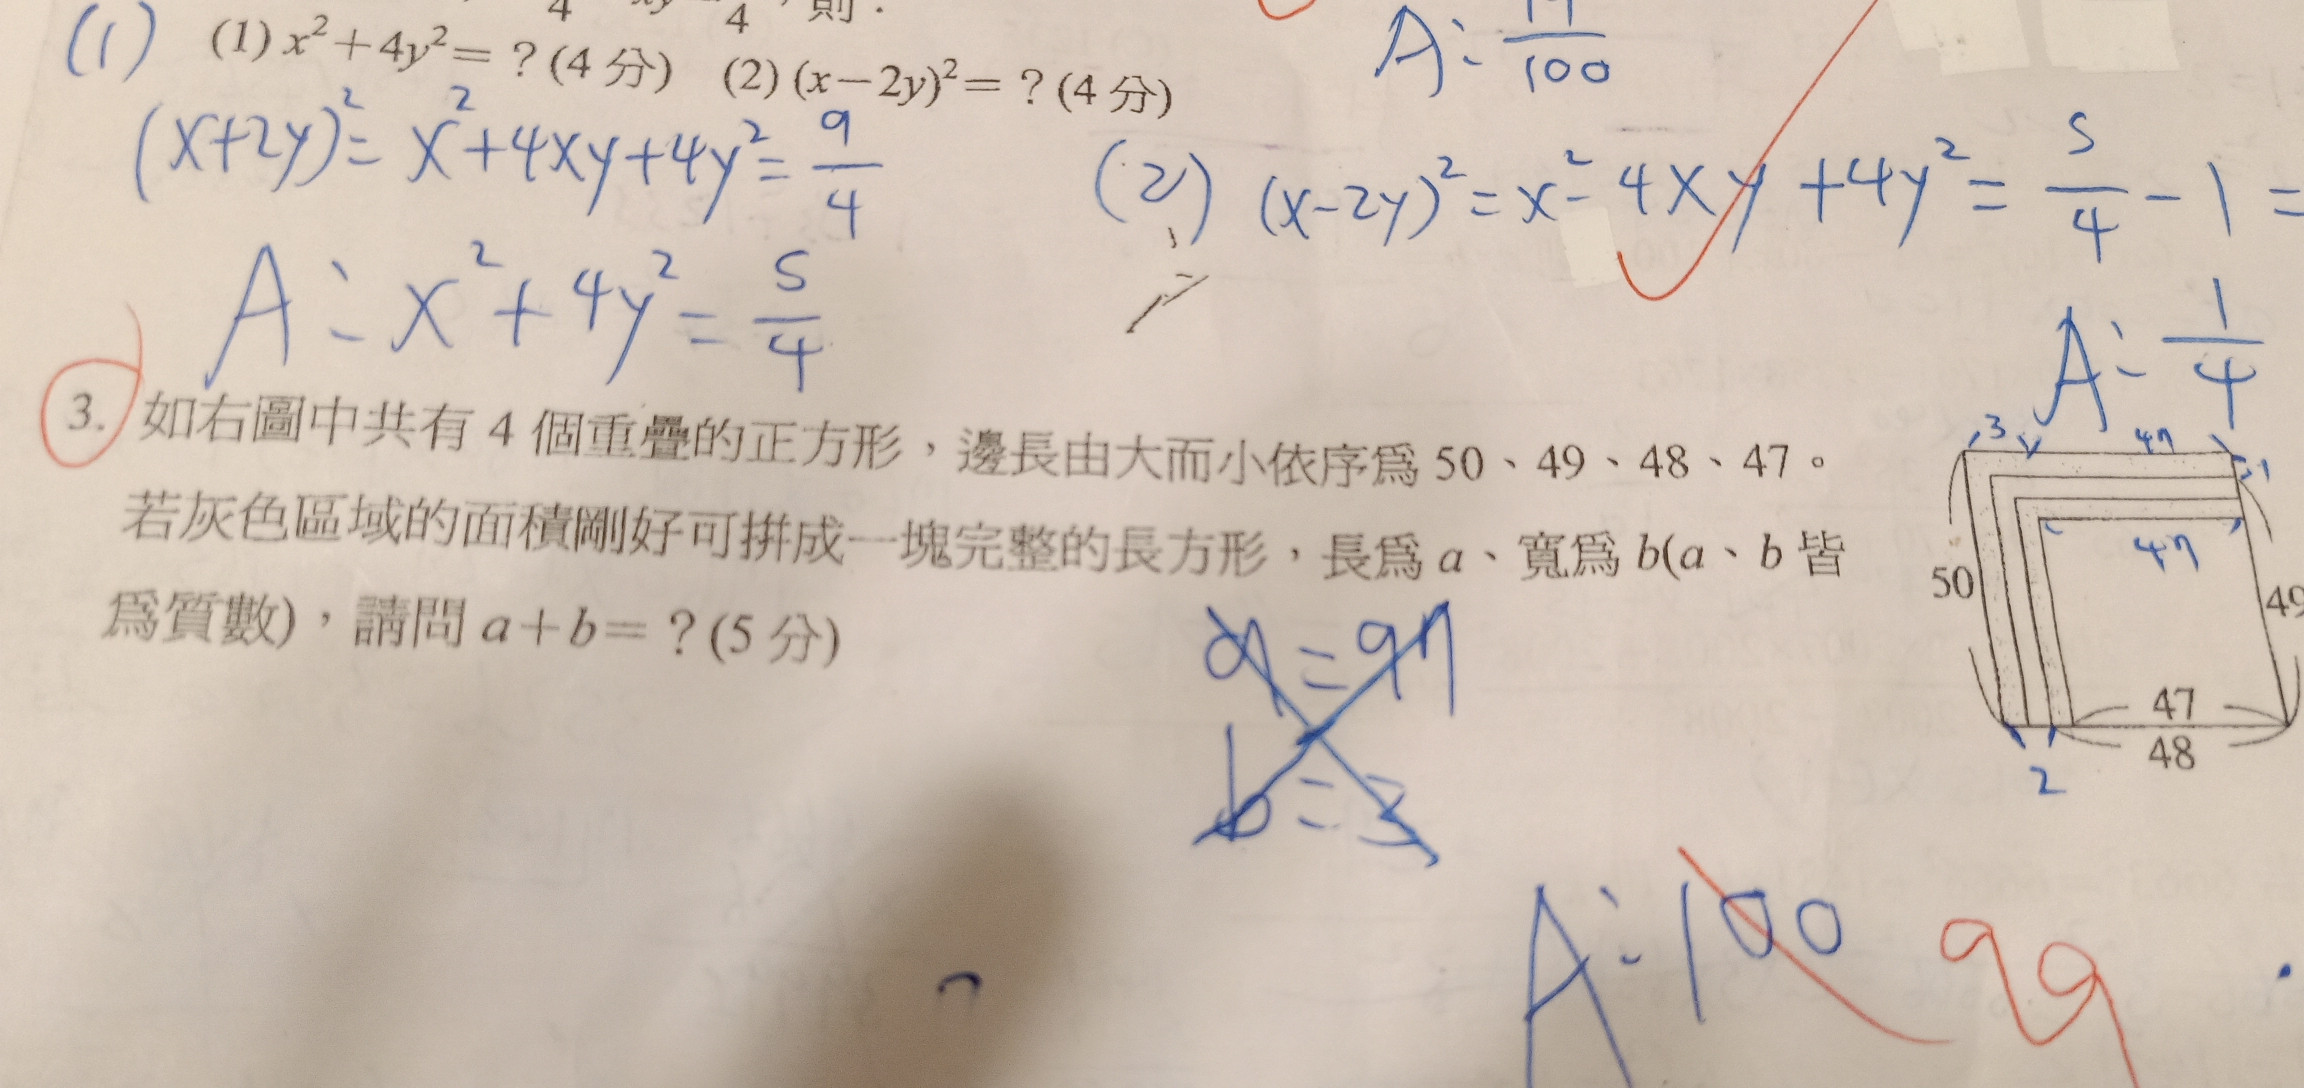 4
4
，則：
(1)
(1) x²+4y²=？(4 分) (2) (x−2y)²=？(4 分)
A: 100
(x+2y)²= x²+4xy+4y²= 9/4
(2) (x-2y)²= x²- 4xy +4y²= 5/4 - 1 =
A: x²+4y²= 5/4
A: 1/4
3. 如右圖中共有 4 個重疊的正方形，邊長由大而小依序爲 50、49、48、47。
若灰色區域的面積剛好可拼成一塊完整的長方形，長爲 a、寬爲 b(a、b 皆
爲質數)，請問 a+b=？(5 分)
3 47
1
47
50
49
47
48
2
a=97
b=3
A: 100 99